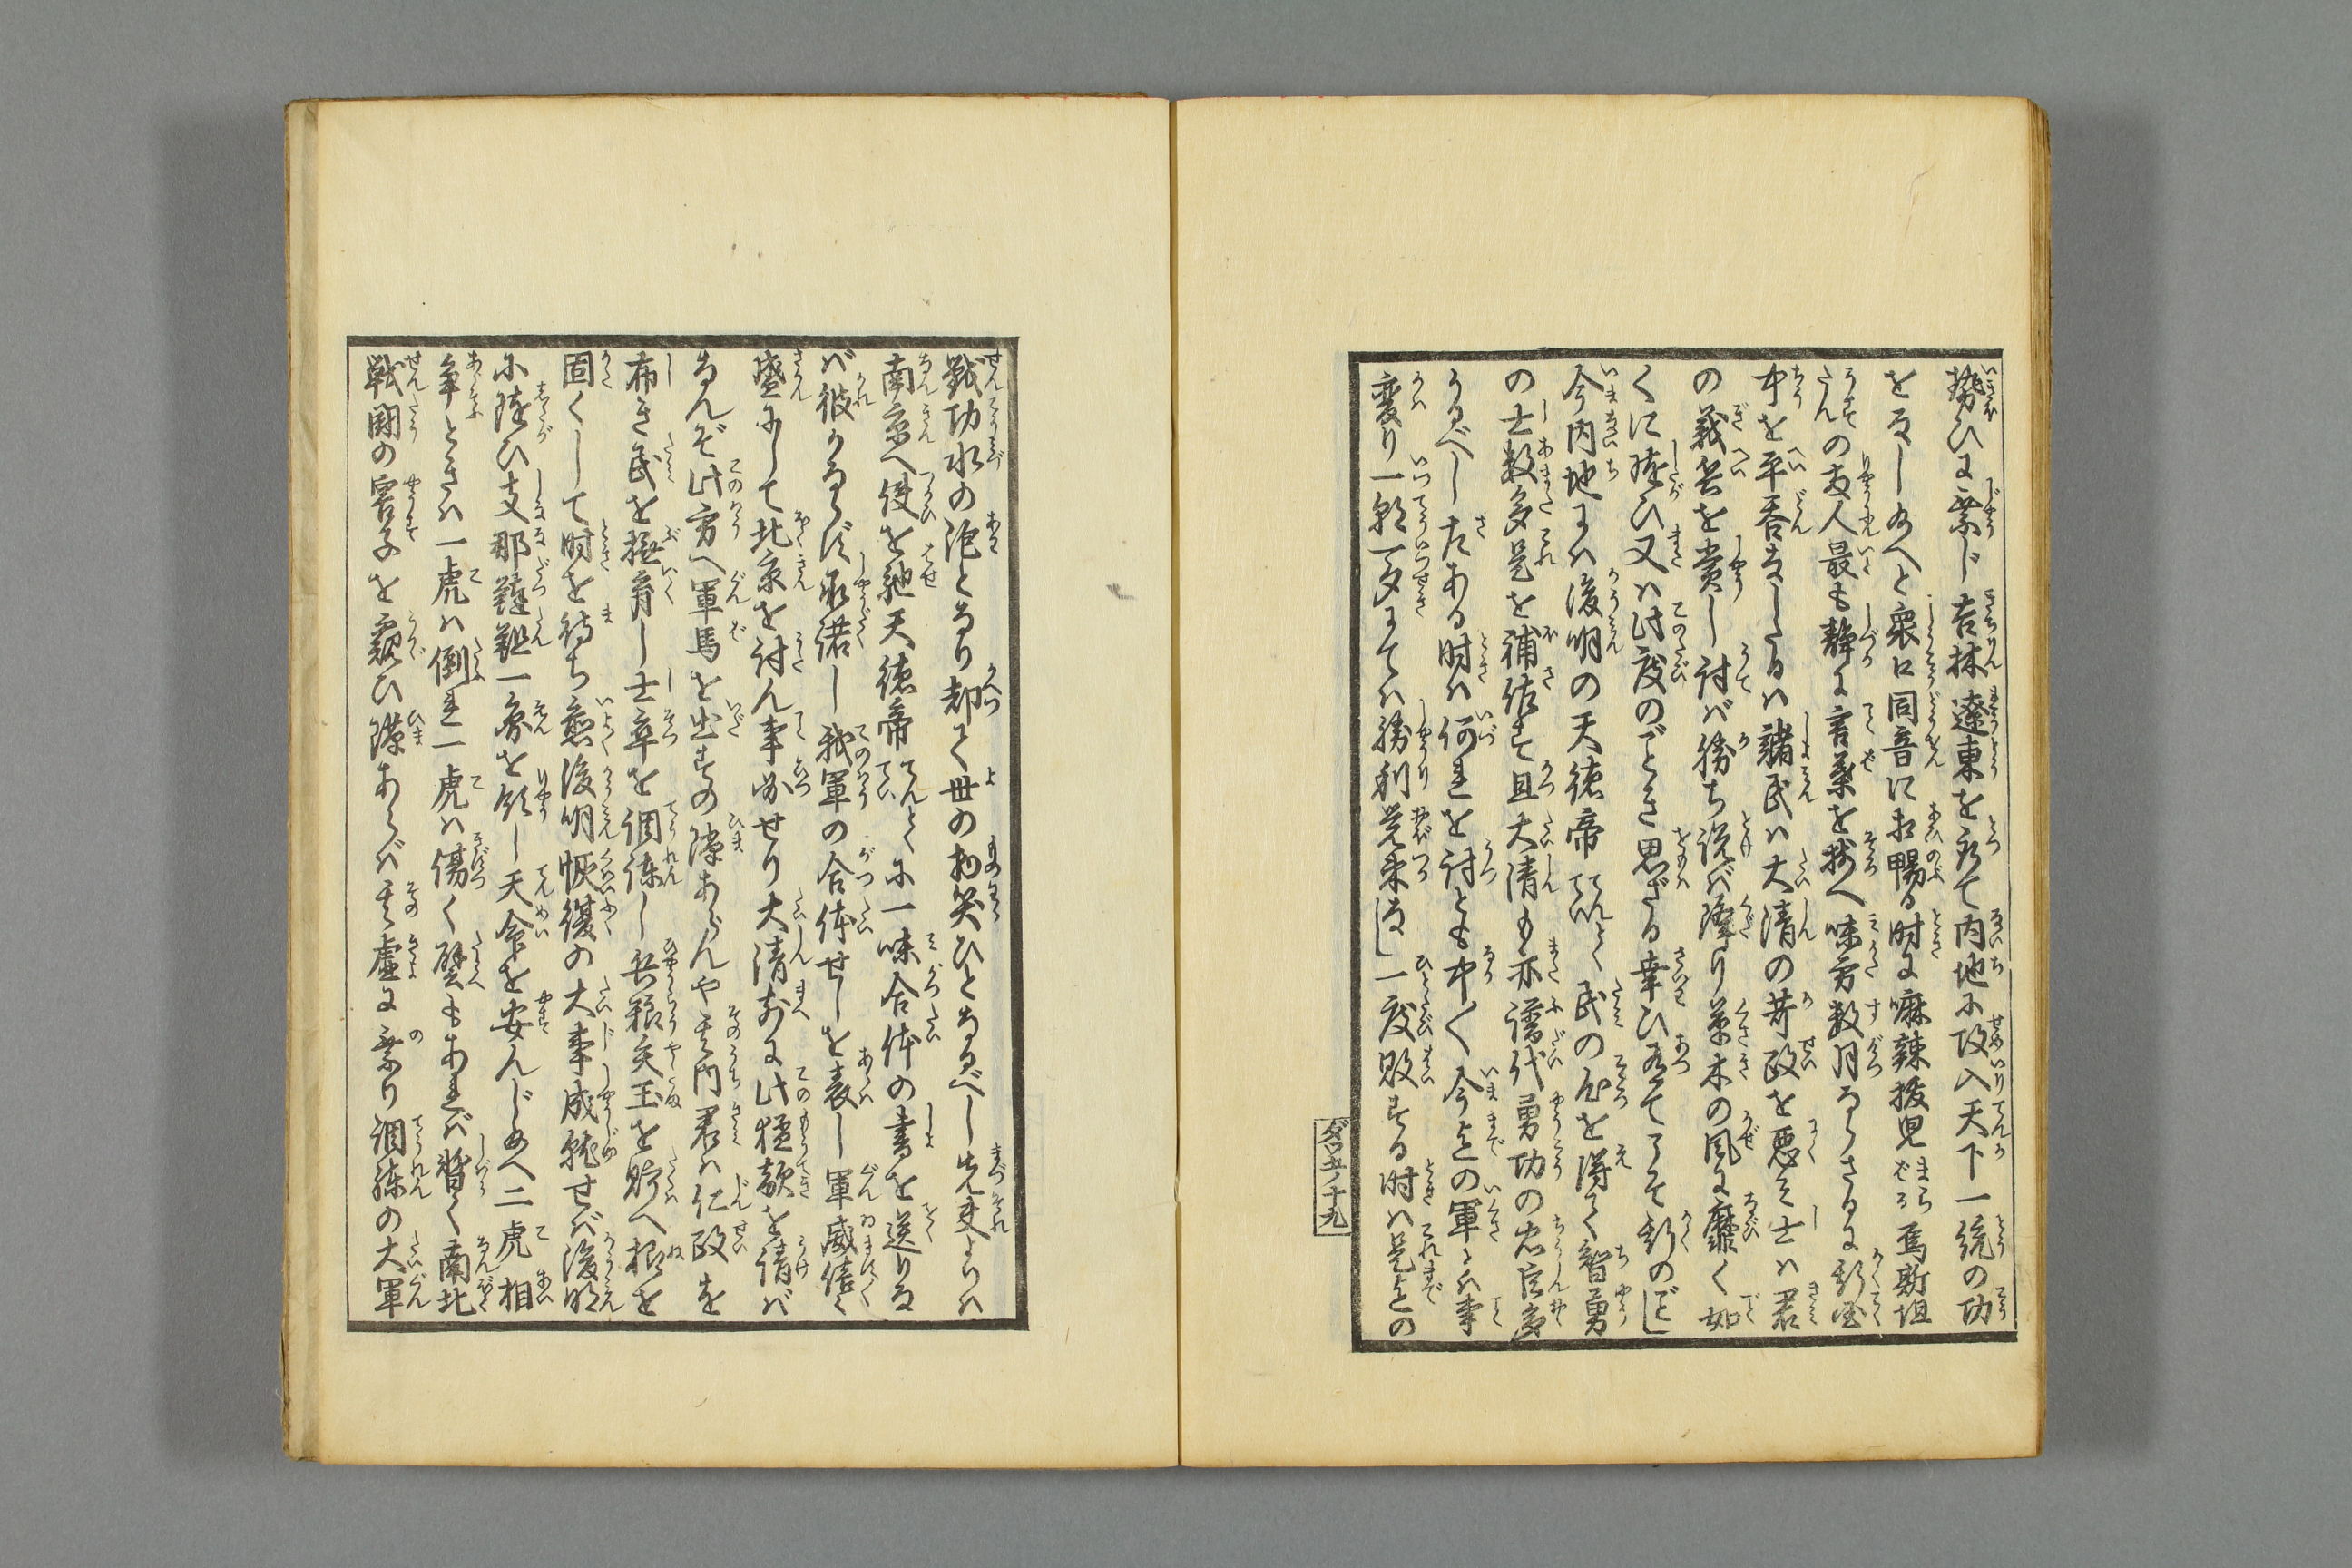 勢ひに乗じ吉林遼東を取て内地に攻入天下一統の功
をなし給へと衆口同音に相暢る時に嘛辣撥児焉斯坦
の両人最も静に言葉を揃へ味方数月ならざるに斯国
中を平呑なしたるハ諸民ハ大清の苛政を悪み士ハ君
の義兵を賞し討バ勝ち説バ降り草木の風に靡く如
くに随ひ又ハ此度のごとき思ざる幸ひ有てこそ斯のごとし
今内地にハ後明の天徳帝民の心を得て智勇
の士数多是を補佐す且大清も亦譜代勇功の忠臣多
かるべし左ある時ハ何れを討とも中〳〵今迄の軍とハ事
変り一朝一夕にてハ勝利覚束なし一度敗する時ハ是迄の
ダロ五ノ十九
戦功水の泡となり却て世の物笑ひとなるべし先夫よりハ
南京へ使を馳天徳帝に一味合体の書を送りな
バ彼かならず承諾し我軍の合体せしを表し軍威倍々
盛にして北京を討ん事必せり大清前に此猛敵を請バ
なんぞ此方へ軍馬を出すの隙あらんや其内君ハ仁政を
布き民を撫育し士卒を調練し兵粮矢玉を貯へ根を
固くして時を待ち愈後明恢復の大事成就せバ後明
に随ひ支那韃靼一帝を領し天命を安んじ給へ二虎相
争ときハ一虎ハ倒れ一虎ハ傷く譬もあれバ暫く南北
戦闘の容子を窺ひ隙あらバ其虚に乗り調練の大軍